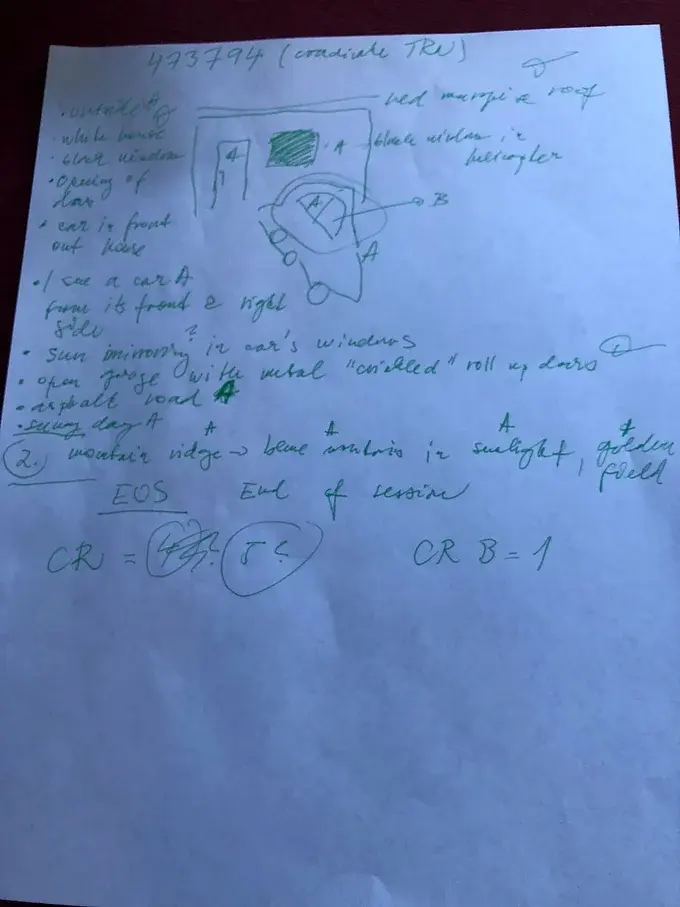 473794 (coordinate TRN)
• outside A
• white house
• black window
• opening of door
• car in front out house
red margin roof
A
A
black window in helicopter
A
B
A
• I see a car A from its front & right side
?
• Sun mirroring in car's windows
• open garage with metal "crinkled" roll up doors
• asphalt road A
• sunny day A
2. mountain ridge → blue in sunlight, golden field
A A A A
EOS End of session
CR = 5? CR B = 1